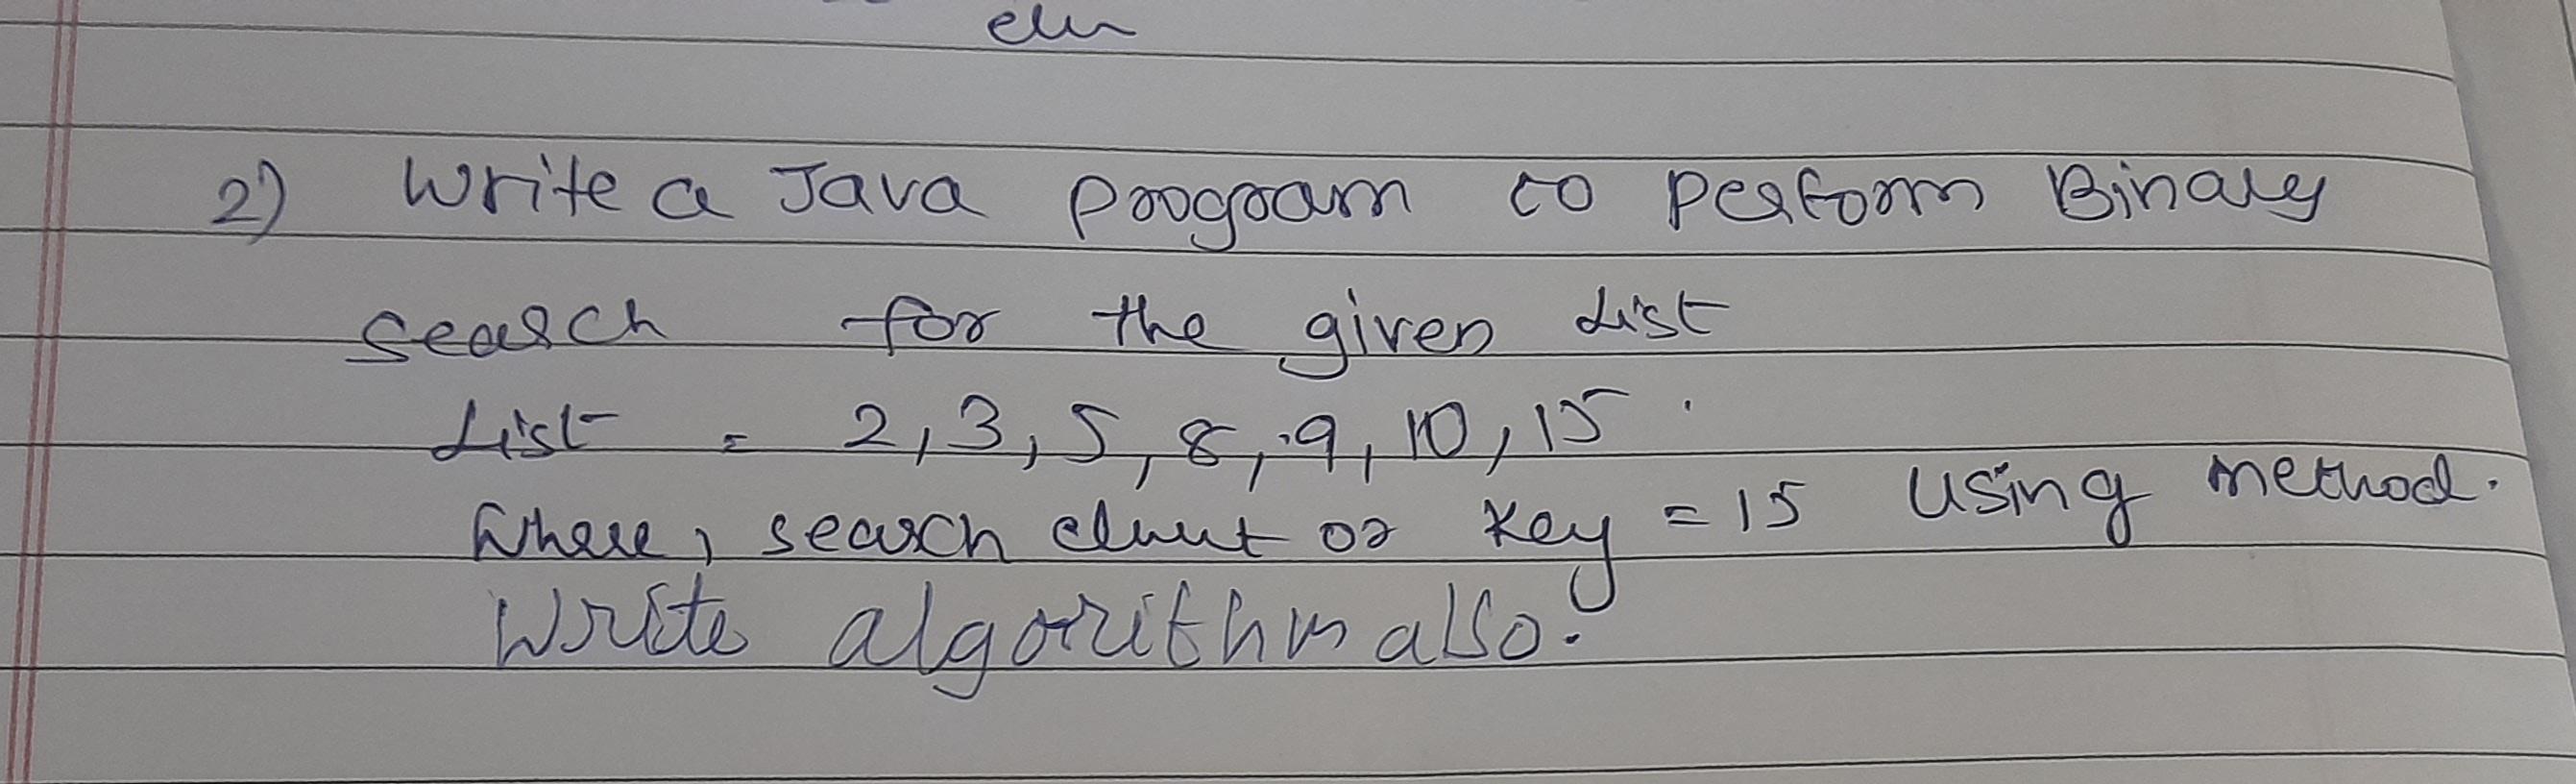 2) Write a Java program to perform Binary
search for the given List
List = 2, 3, 5, 8, 9, 10, 15.
where, search or key = 15 using method.
Write algorithm also.